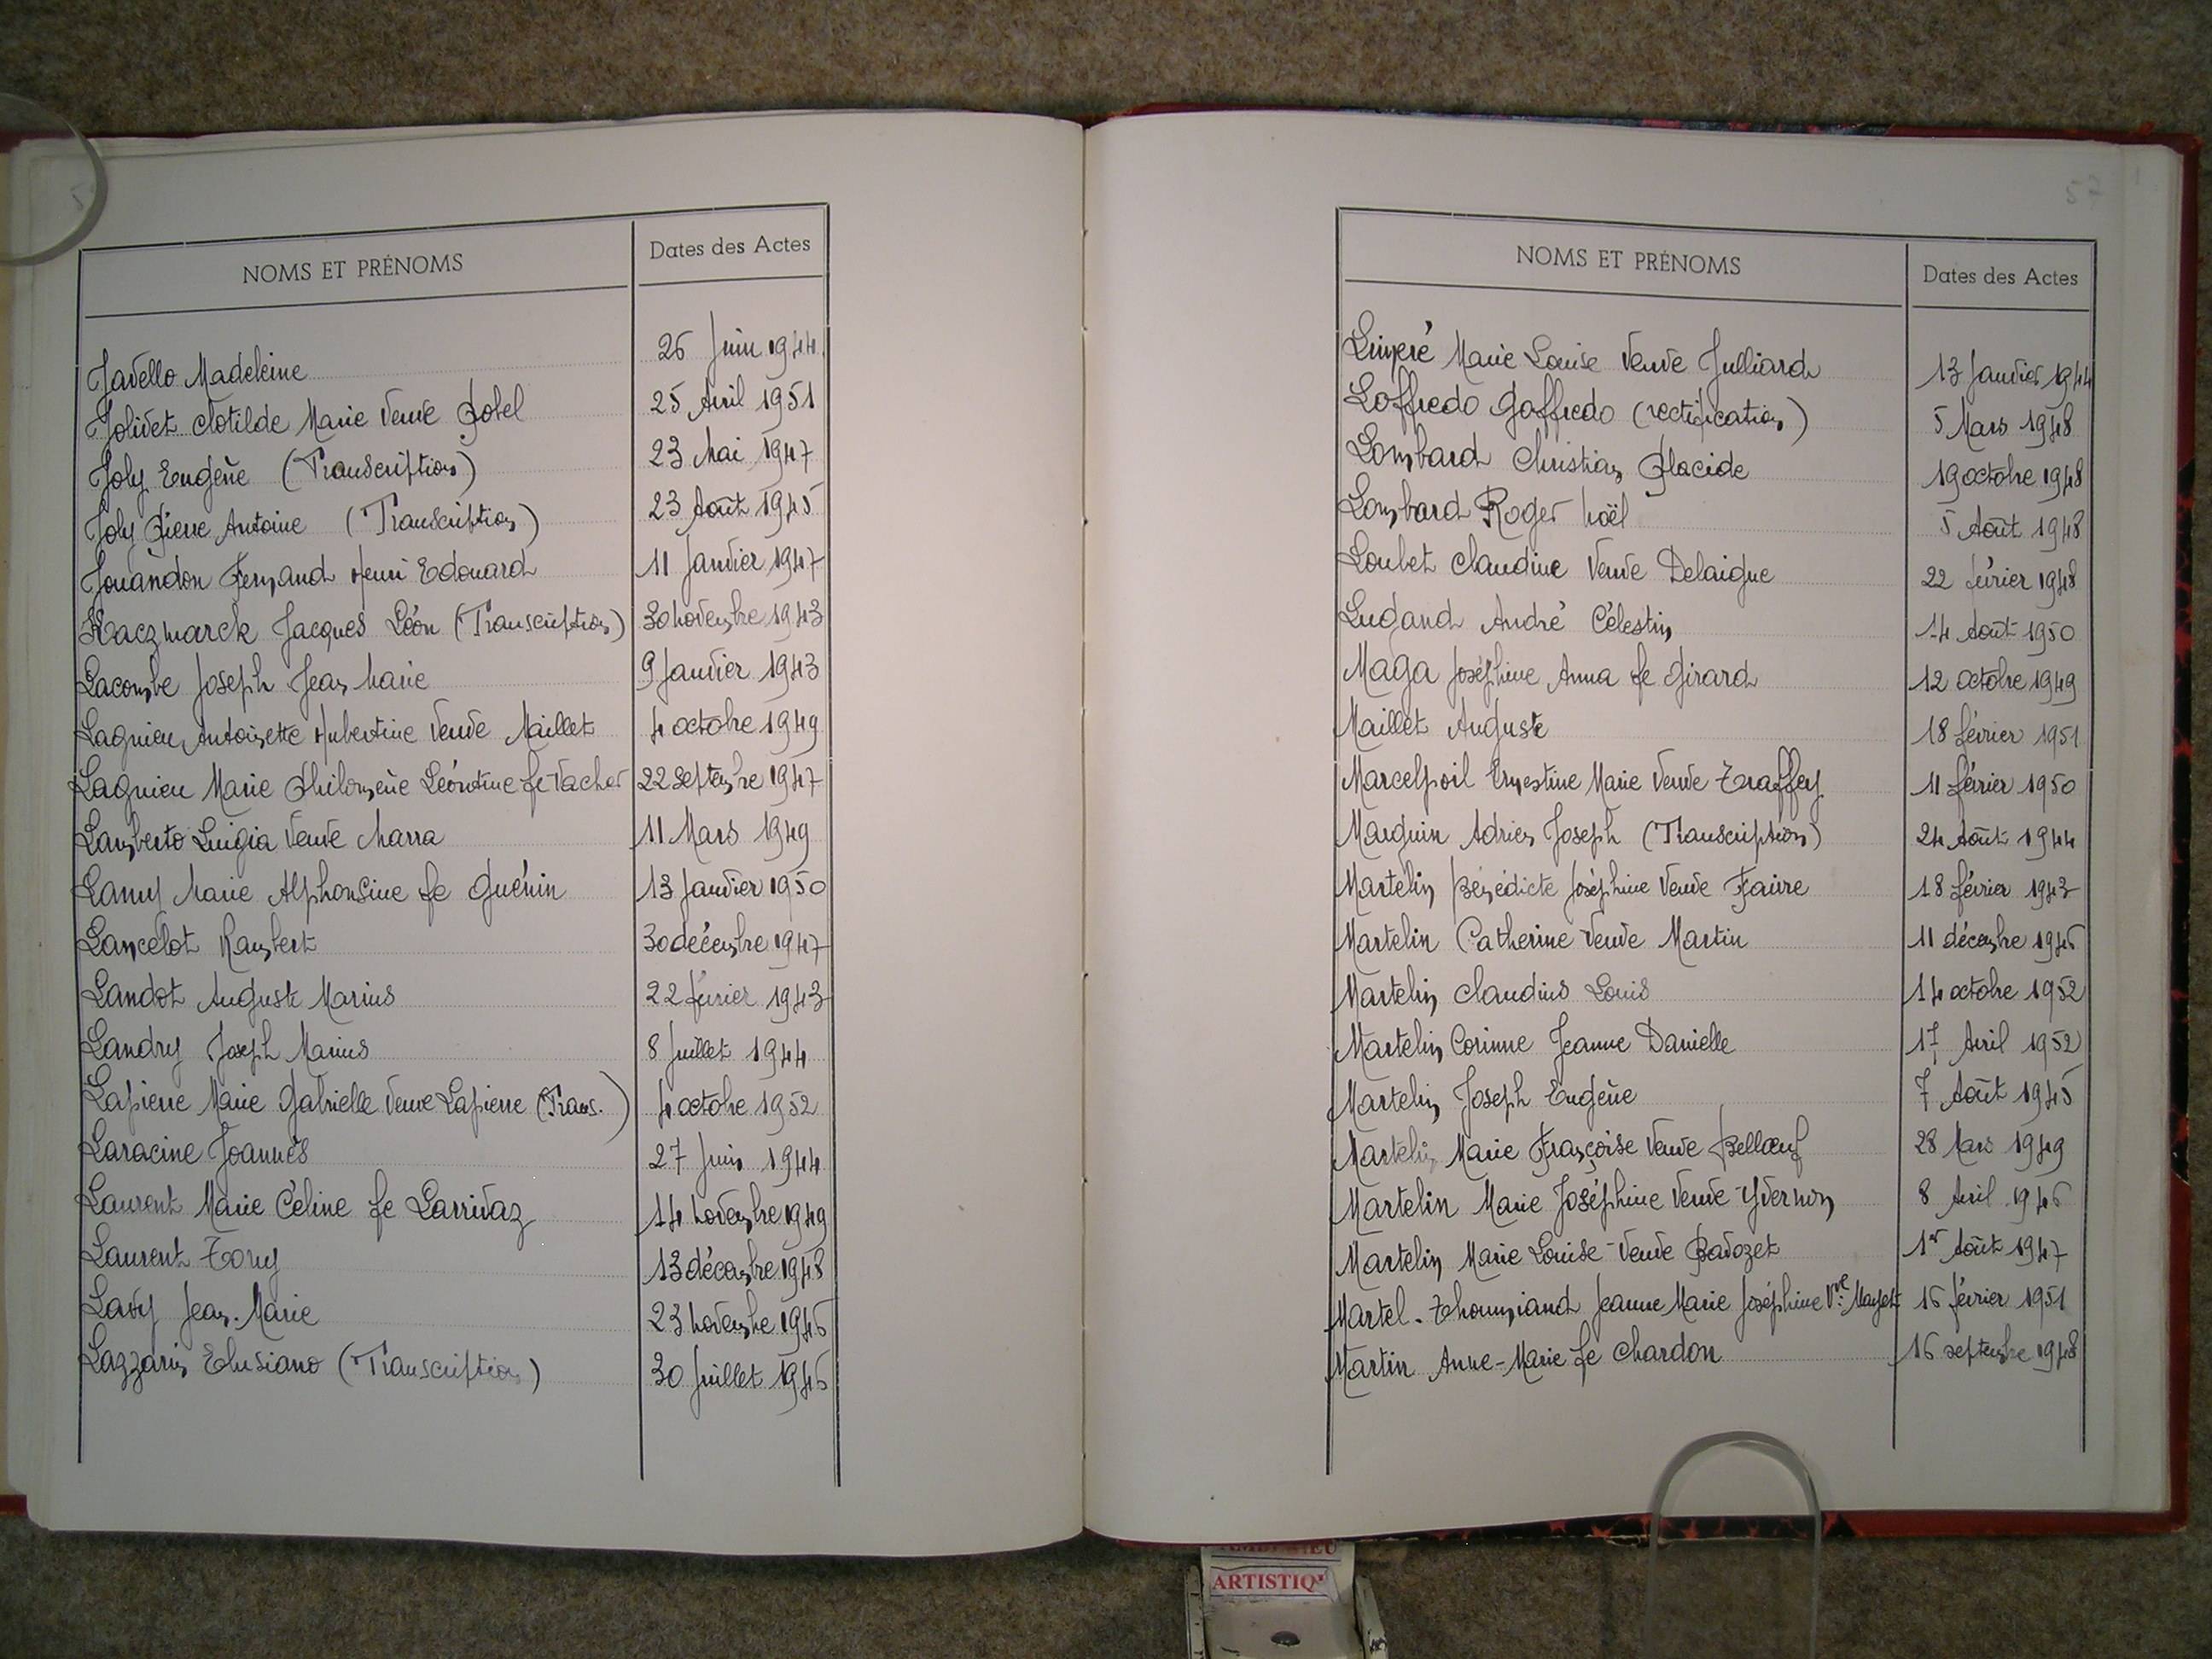 NOMS ET PRÉNOMS Dates des Actes
Javello Madeleine 26 Juin 1944
Jolivet Clotilde Marie Veuve Potel 25 Avril 1951
Joly Eugène (Transcription) 23 Mai 1947
Joly Pierre Antoine (Transcription) 23 Août 1945
Jouandon Fernand Henri Edouard 11 Janvier 1947
Kaczmarck Jacques Léon (Transcription) 30 novembre 1943
Lacombe Joseph Jean Marie 9 Janvier 1943
Lagnieu Antoinette Hubertine Veuve Maillet 4 octobre 1949
Lagnieu Marie Philomène Léontine fe Vacher 22 septembre 1947
Lamberto Luigia Veuve Marra 11 Mars 1949
Lamy Marie Alphonsine fe Guénin 13 Janvier 1950
Lancelot Rambert 30 décembre 1947
Landot Auguste Marius 22 février 1943
Landry Joseph Marius 8 Juillet 1944
Lapierre Marie Gabrielle Veuve Lapierre (Trans.) 4 octobre 1952
Laracine Joannès 27 Juin 1944
Laurent Marie Céline fe Larrivaz 14 novembre 1949
Laurent Tony 13 décembre 1948
Lavy Jean-Marie 23 novembre 1946
Lazzarin Elusiano (Transcription) 30 Juillet 1946
NOMS ET PRÉNOMS Dates des Actes
Marie Louise Veuve Julliard 13 Janvier 1944
Loffredo Goffredo (rectification) 5 Mars 1948
Lombard Christian Placide 19 octobre 1948
Lombard Roger Noël 5 Août 1948
Loubet Claudine Veuve Delaigue 22 février 1948
Lugand André Célestin 14 Août 1950
Maga Joséphine Anna fe Girard 12 octobre 1949
Maillet Auguste 18 février 1951
Marcelpoil Ernestine Marie Veuve Traffey 11 février 1950
Marguin Adrien Joseph (Transcription) 24 Août 1944
Martelin Bénédicte Joséphine Veuve Faivre 18 février 1943
Martelin Catherine Veuve Martin 11 décembre 1946
Martelin Claudius Louis 14 octobre 1952
Martelin Corinne Jeanne Danielle 17 Avril 1952
Martelin Joseph Eugène 7 Août 1945
Martelin Marie Françoise Veuve Bellœuf 28 Mars 1949
Martelin Marie Joséphine Veuve Yvernon 8 Avril 1946
Martelin Marie Louise Veuve Bavozet 1er Août 1947
Martel-Thoumiand Jeanne Marie Joséphine Vve Mayet 16 février 1951
Martin Anne-Marie fe Chardon 16 septembre 1948
ARTISTIQ